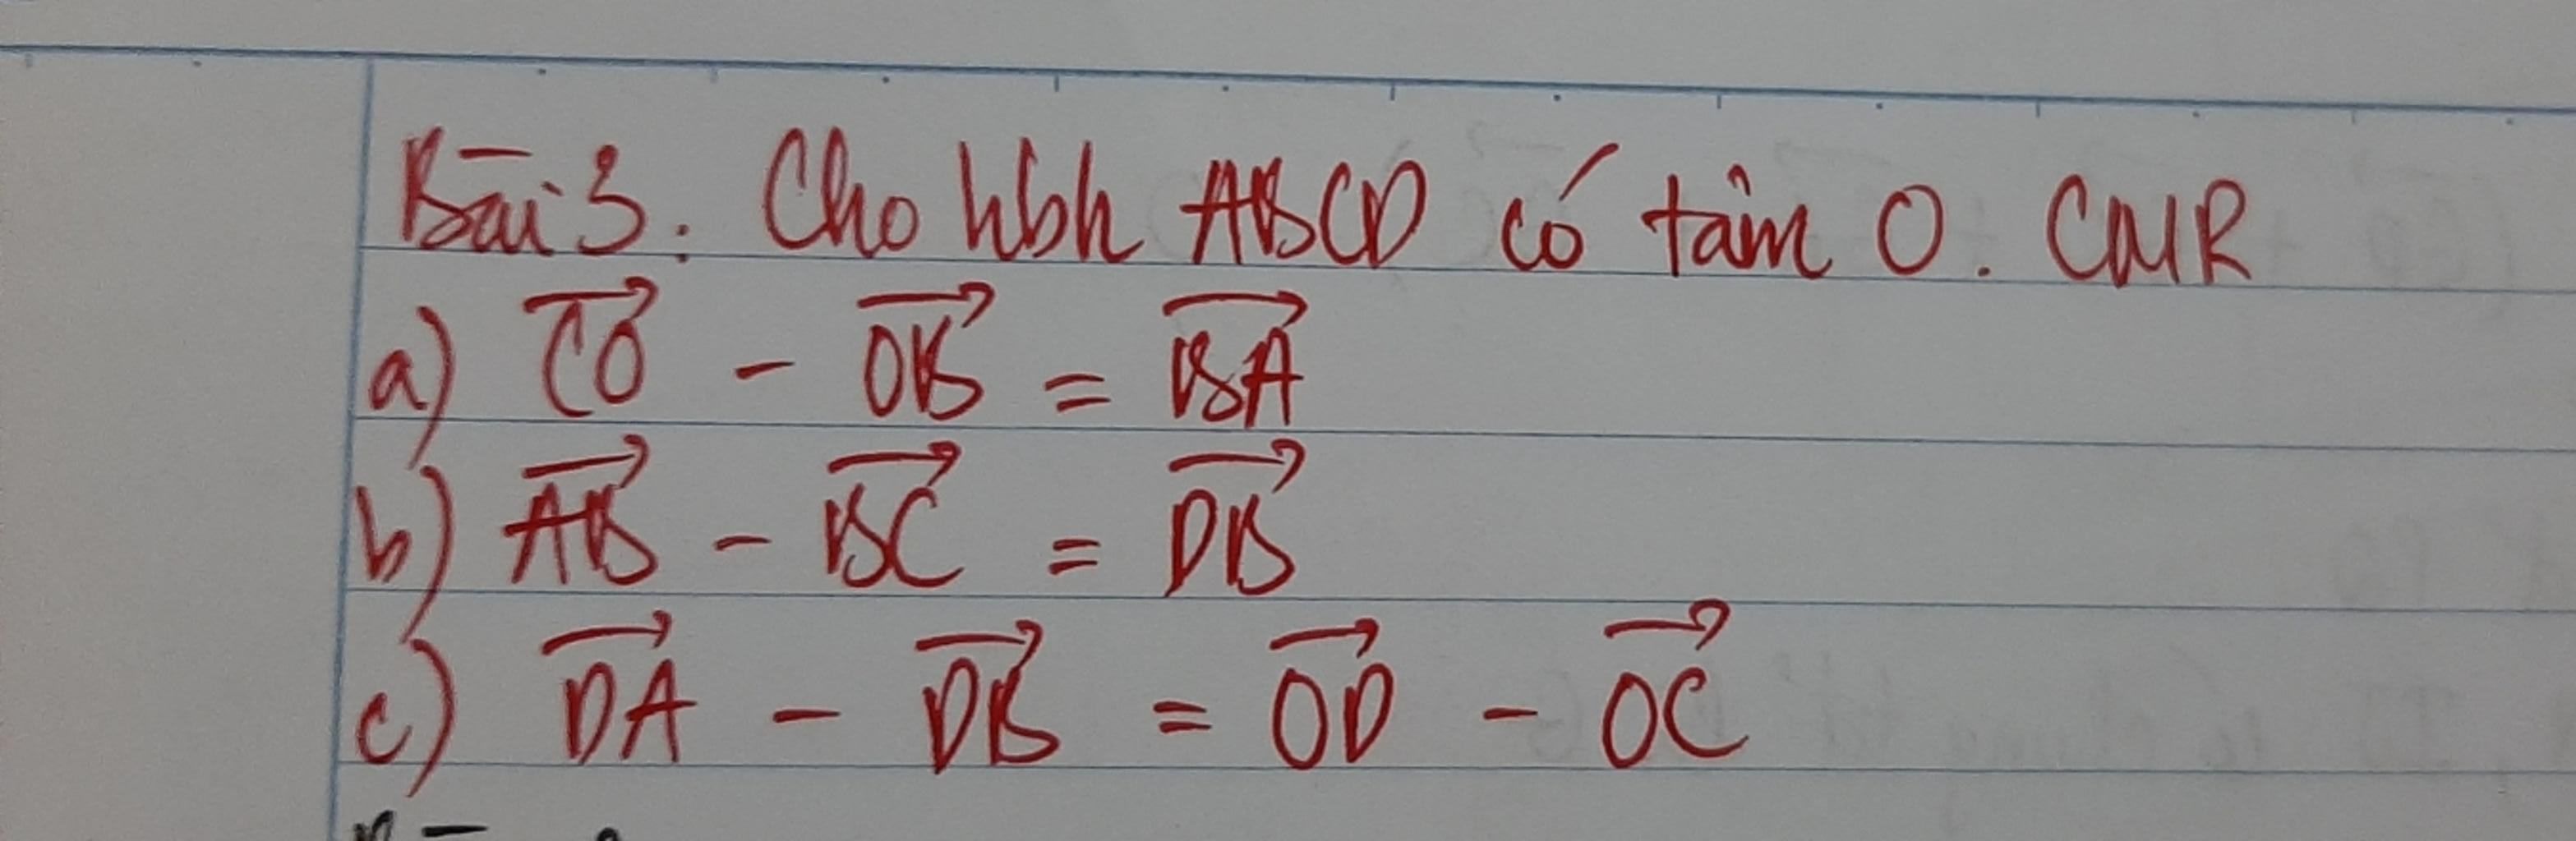 Bài 3. Cho hbh ABCD có tâm O. CMR
a) $\overrightarrow{CO} - \overrightarrow{OB} = \overrightarrow{BA}$
b) $\overrightarrow{AB} - \overrightarrow{BC} = \overrightarrow{DB}$
c) $\overrightarrow{DA} - \overrightarrow{DB} = \overrightarrow{OD} - \overrightarrow{OC}$